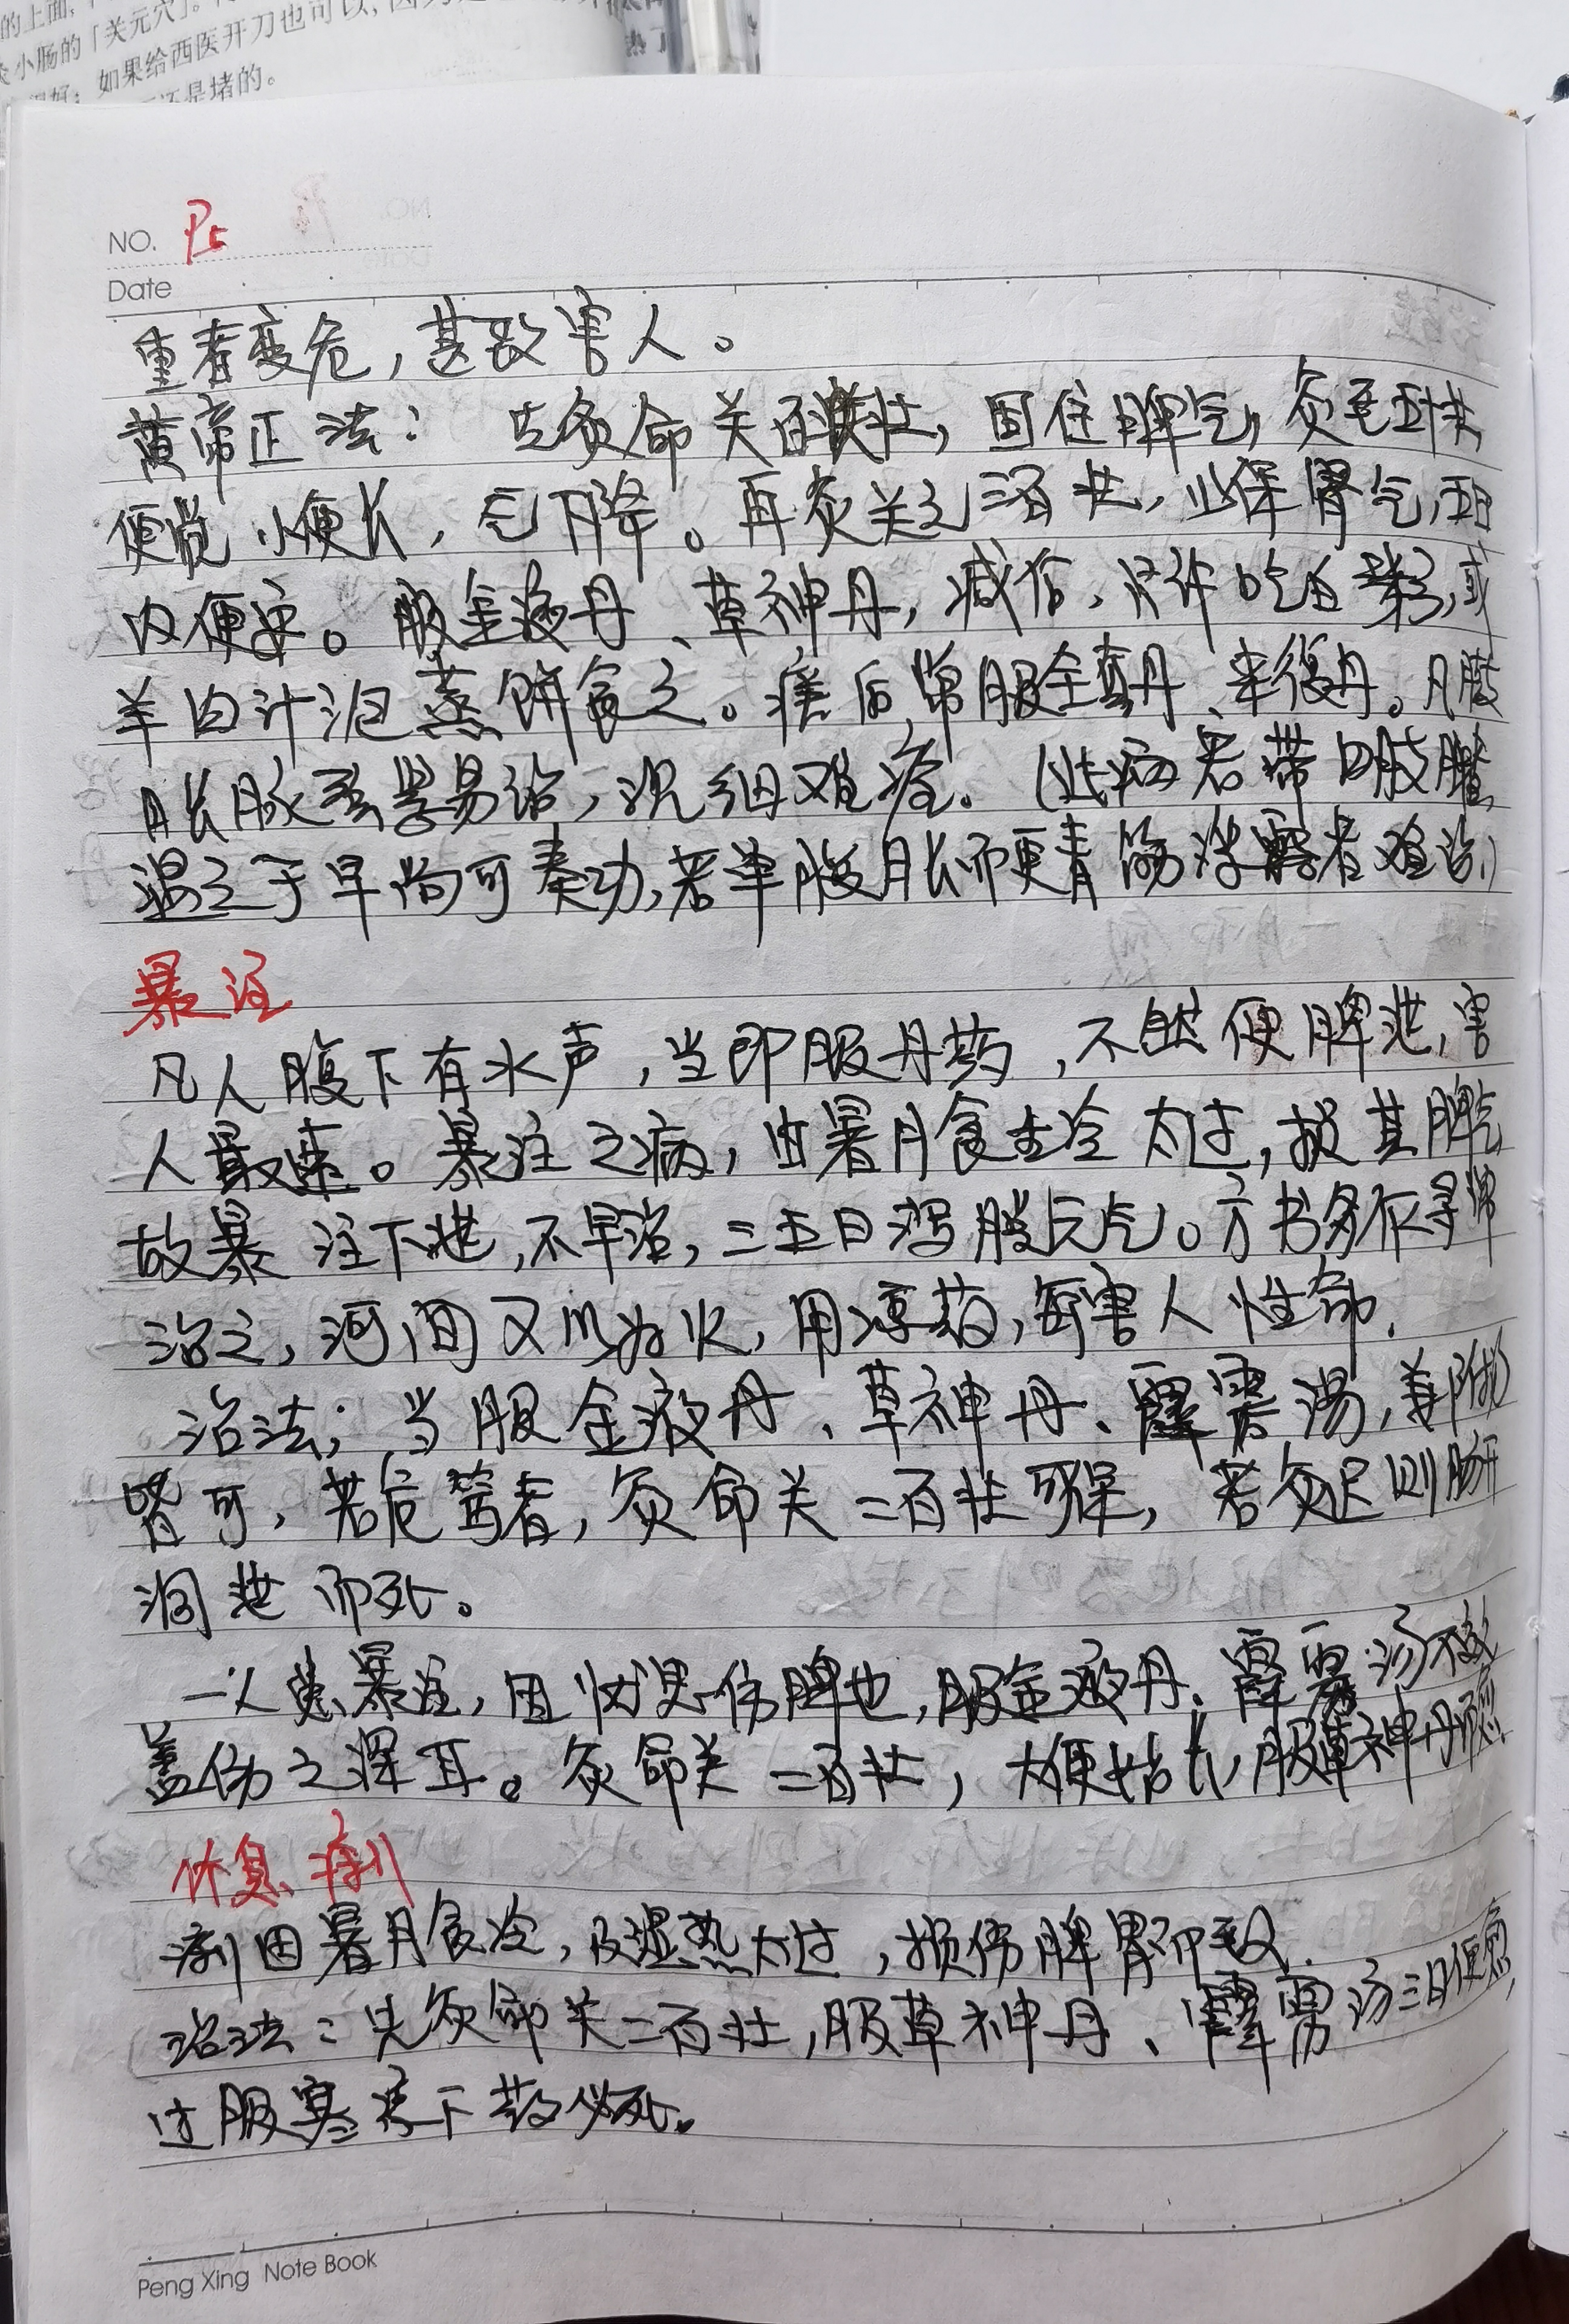 的上面,
小肠的「关元穴」。
如果给西医开刀也可以,
还是堵的。
NO. P5
Date
重者变危,甚致害人。
黄帝正法: 先灸命关百壮,固住脾气,灸至五十壮
便觉小便长,气下降。再灸关元三百壮,以保肾气,五日
内便安。服金液丹、草神丹,减后,只许吃白粥,或
羊肉汁泡蒸饼食之。瘥后常服全真丹、来复丹。凡膨
胀脉弦紧易治,沉细难痊。(此病若带四肢肿
温之于早尚可奏功,若单腹胀而更青筋浮露者难治)
暴注
凡人腹下有水声,当即服丹药,不然便脾泄,害
人最速。暴注之病,由暑月食生冷太过,损其脾气
故暴注下泄,不早治,三五日泻脱元气。方书多作寻常
治之,河间又以为火,用凉药,每害人性命.
治法; 当服金液丹、草神丹、霹雳汤,姜附汤
皆可,若危笃者,灸命关二百壮可保,若灸迟则肠开
洞泄而死。
一人患暴注,因忧思伤脾也,服金液丹、霹雳汤不效
盖伤之深耳。灸命关二百壮,大便始长,服草神丹愈
休息痢
痢因暑月食冷,及湿热太过,损伤脾胃而致.
治法:先灸命关二百壮,服草神丹、霹雳汤三日便愈,
过服寒凉下药必死。
Peng Xing Note Book